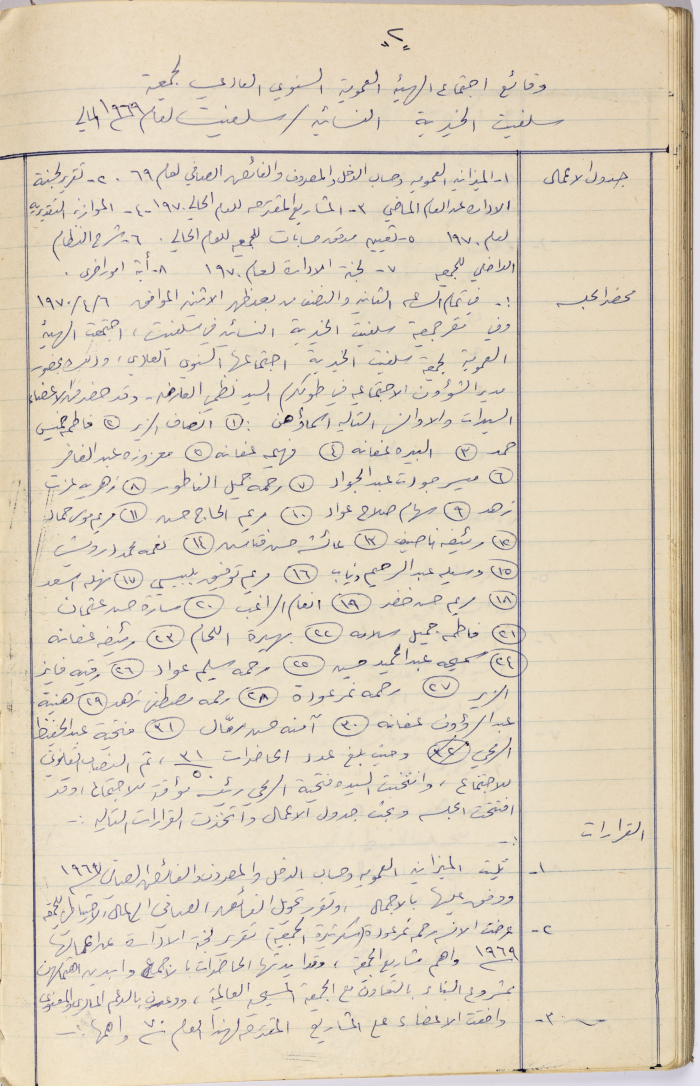 "٢"
وقائع اجتماع الهيئة العمومية السنوي العادي لجمعية
سلفيت الخيرية النسائية / سلفيت لعام ١٩٦٩ المالي
جدول الاعمال
١- الميزانيه العموميه وحساب الدخل والمصروف والفائض الصافي لعام ٦٩ . ٢- تقرير لجنة
الاداره عن العام الماضي ٣- المشاريع المقترحه للعام الحالي ١٩٧٠ - ٤- الموازنه التقديريه
لعام ١٩٧٠ ٥- تعيين مدقق حسابات للجمعيه للعام الحالي . ٦- شرح النظام
الداخلي للجمعيه ٧- لجنة الادارة لعام ١٩٧٠ ٨- أية امور اخرى .
محضر الجلسه
:- في تمام الساعه الثانيه والنصف من بعد ظهر الاثنين الموافق ١٩٧٠/٤/٦
وفي مقر جمعية سلفيت الخيرية النسائيه في سلفيت ، اجتمعت الهيئة
العمومية لجمعية سلفيت الخيرية اجتماعها السنوي العادي ، وذلك بحضور
مدير الشؤون الاجتماعيه في طولكرم السيد نظمي - وقد حضر من الاعضاء
السيدات والاوانس التاليه اسماؤهن :- ١ انصاف الزير ٢ فاطمه خميس
حمد ٣ البيده عفانه ٤ فهيمه عفانه ٥ معزوزه عبد الغافر
٦ ميسر جودت عبد الجواد ٧ رحمه جميل الفاطور ٨ زهريه عزت
زهد ٩ سهام صلاح عواد ١٠ مريم الحاج حسن ١١ مريم موسى حماد
١٢ رئيفه ناصيف ١٣ عائشه حسن ١٤ نعمه محمد درويش
١٥ وسيله عبد الرحيم ذياب ١٦ مريم توفيق بلبيسي ١٧ نهله اسعد
١٨ مريم حسن خضر ١٩ انعام الراغب ٢٠ سارة حسن عثمان
٢١ فاطمه جميل سلامه ٢٢ بهيرة اللحام ٢٣ رئيفه عفانه
٢٤ سميحه عبد الحميد حسين ٢٥ رحمه سليم عواد ٢٦ رقيه فايز
الزير ٢٧ رحمه نمر عودة ٢٨ رحمه مصطفى زهد ٢٩ هنية
عبد الرؤوف عفانه ٣٠ آمنه حسن ٣١ فتحية عبد الحفيظ
الريحي وحيث بلغ عدد الحاضرات ٣١/٥٠ ، تم النصاب القانوني
للاجتماع ، وانتخبت السيده فتحية الريحي رئيسة مؤقته للاجتماع ، وقد
افتتحت الجلسه وبحث جدول الاعمال واتخذت القرارات التاليه :-
القرارات :-
١- تليت الميزانيه العموميه وحساب الدخل والمصروف والفائض الصافي ١٩٦٩
ووفق عليها بالاجمال ، وتقرر تحويل الفائض الصافي الى المال الاحتياطي للجمعيه
٢- عرضت الانسه رحمه نمر عوده (سكرتيرة الجمعية) تقرير لجنة الادارة عن اعمالها
١٩٦٩ واهم مشاريع الجمعية ، وقد ايدتها الحاضرات بالاجماع وابدين اهتمامهن
بمشروع البناء بالتعاون مع الجمعية المسيحيه العالمية ، ووعدن بالدعم المادي والمعنوي
٣- وافقت الاعضاء على المشاريع المقترحه لهذا العام ٧٠ واهمها :-